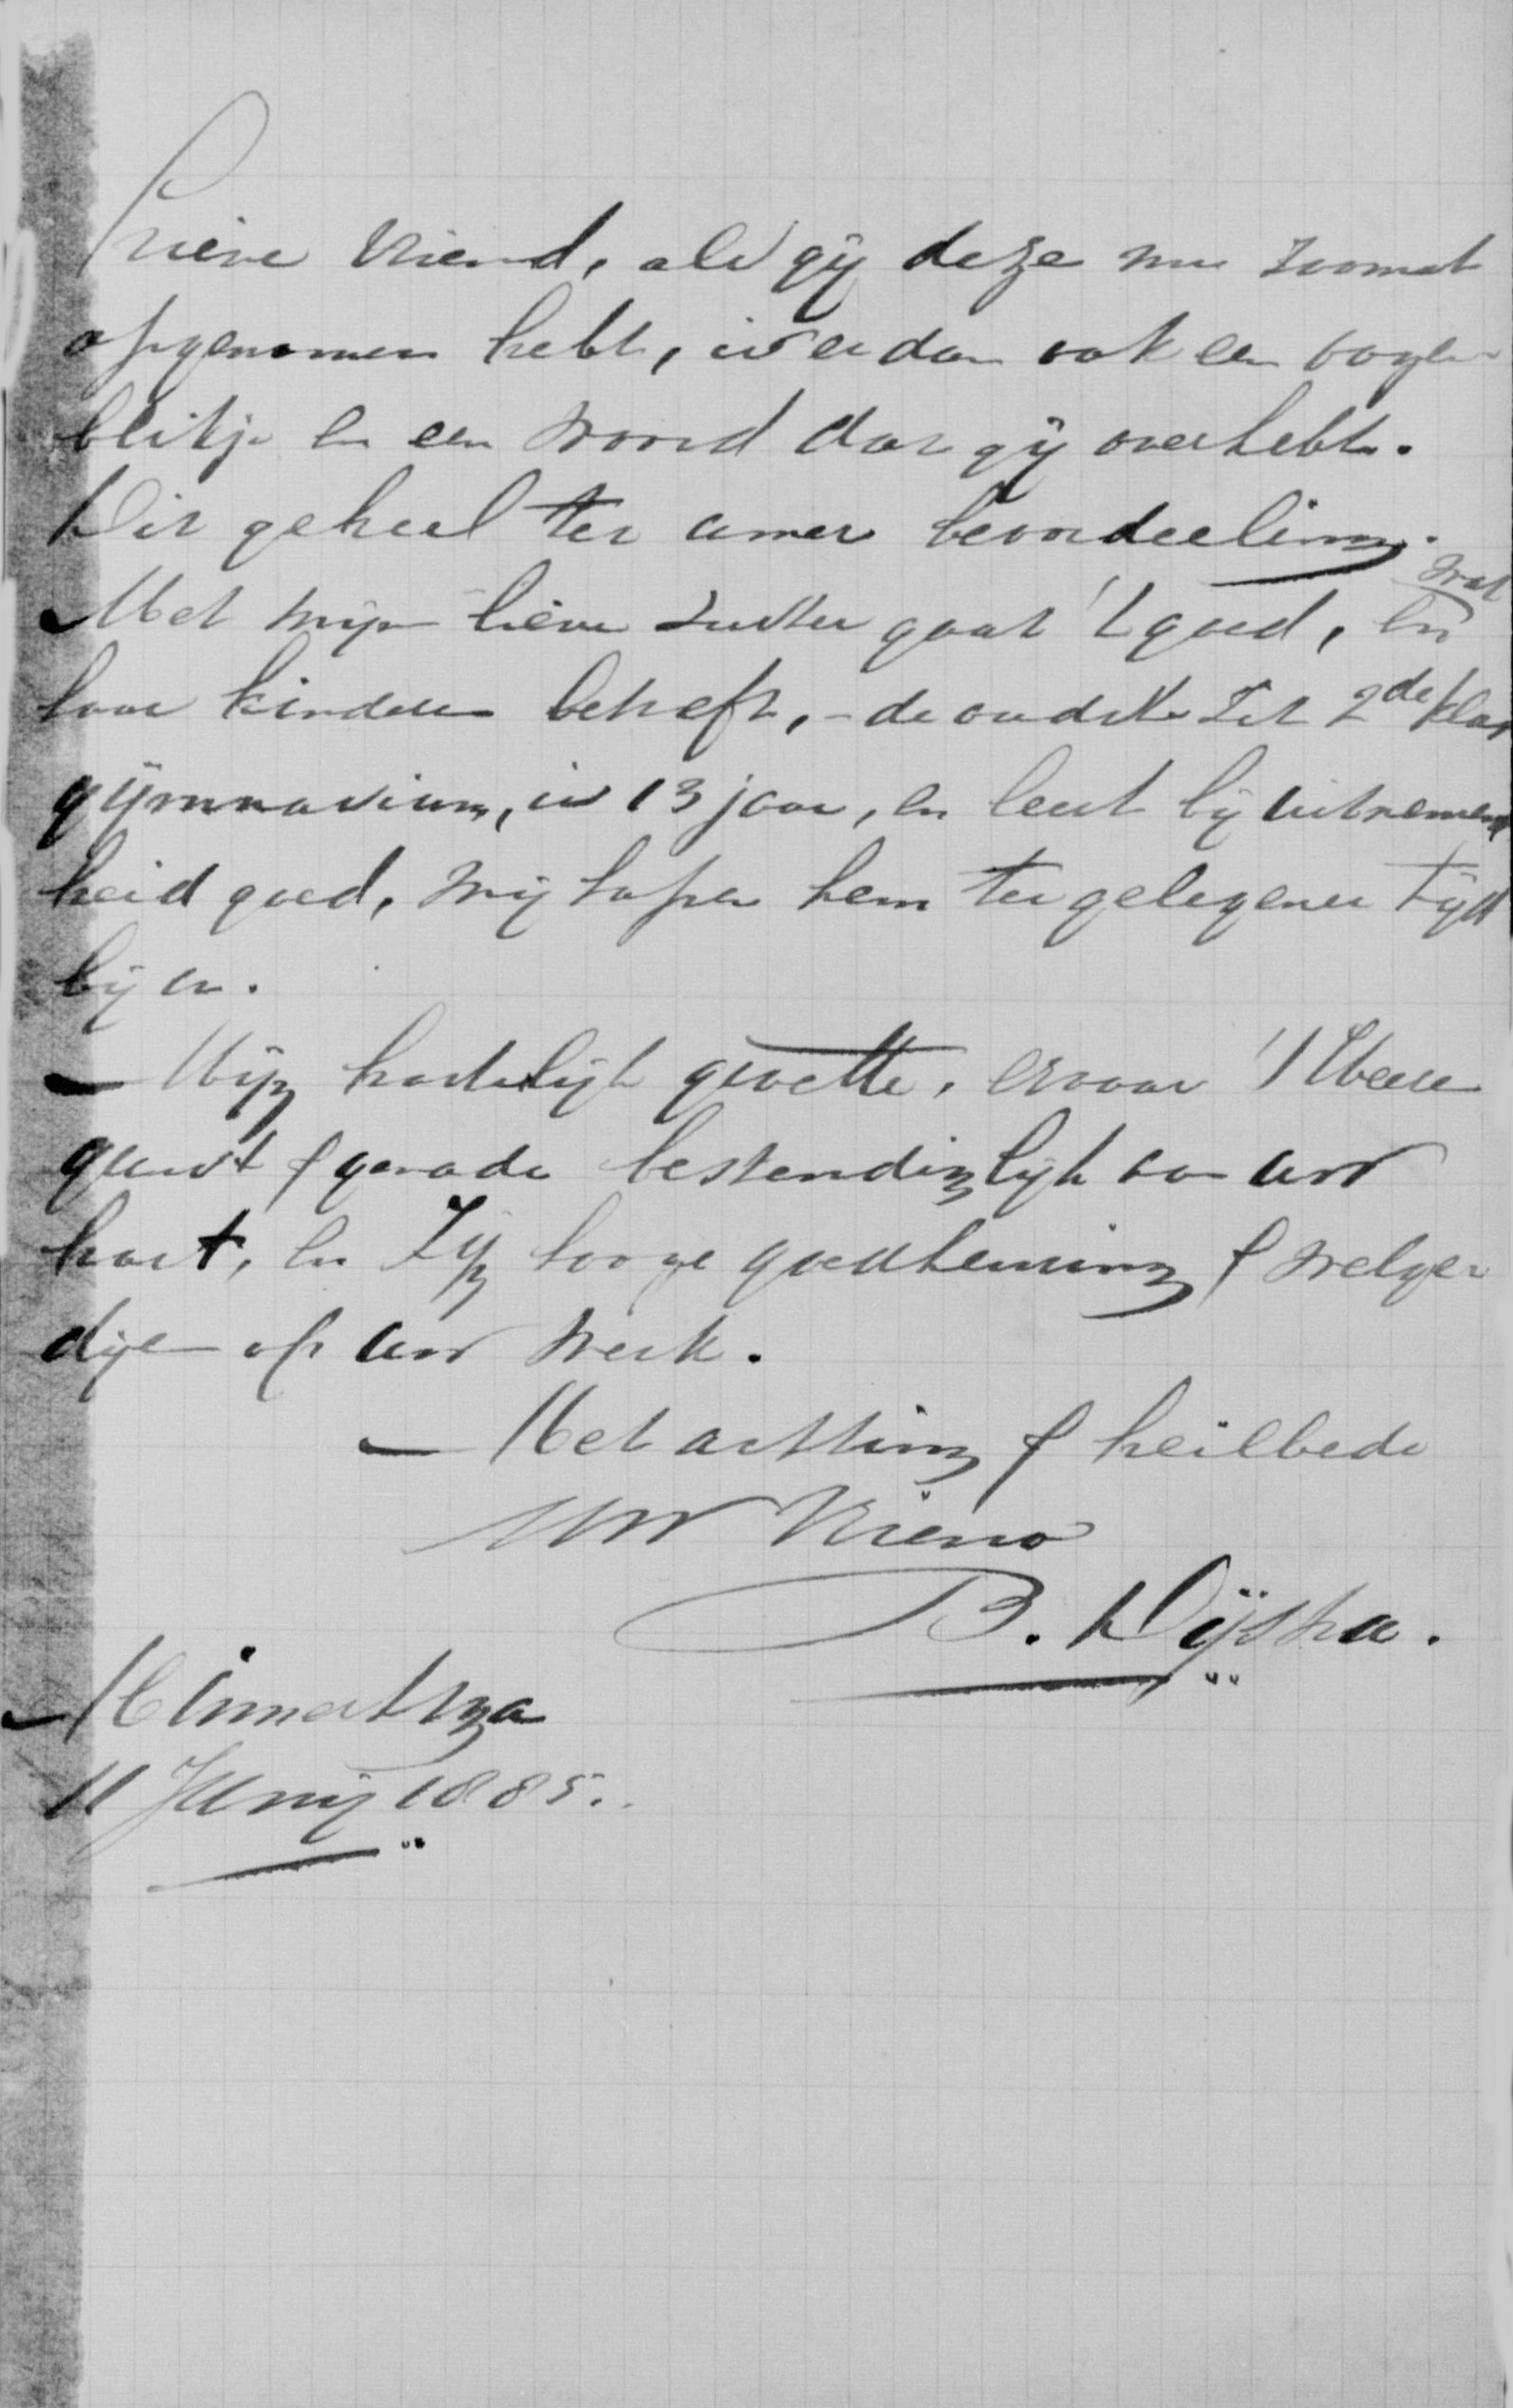 Lieve Vriend, als gij deze nu zoomet
opgenomen hebt, is er dan ook een oogen
blikje en een woord dat gij overhebt.
Dit geheel ter uwer beoordeeling.
Met mijn lieve zuster gaat 't goed, en wat
haar kinderen betreft, - de oudste zit 2de klas
gijmnasium, is 13 jaar, en leert bij uitnemend
heid goed, wij hopen hem ter gelegener tijd
bij u.
Wijz hartelijk groette, ervaar 's Heeren
gunst & genade bestendiglijk aan uw
hart, en Zijn hooge goedkeuring & welge
dijen op uw werk.
Met achting & heilbede
Uw Vriend
B. Dijksha.
Minnertsga
11 Junij 1885.